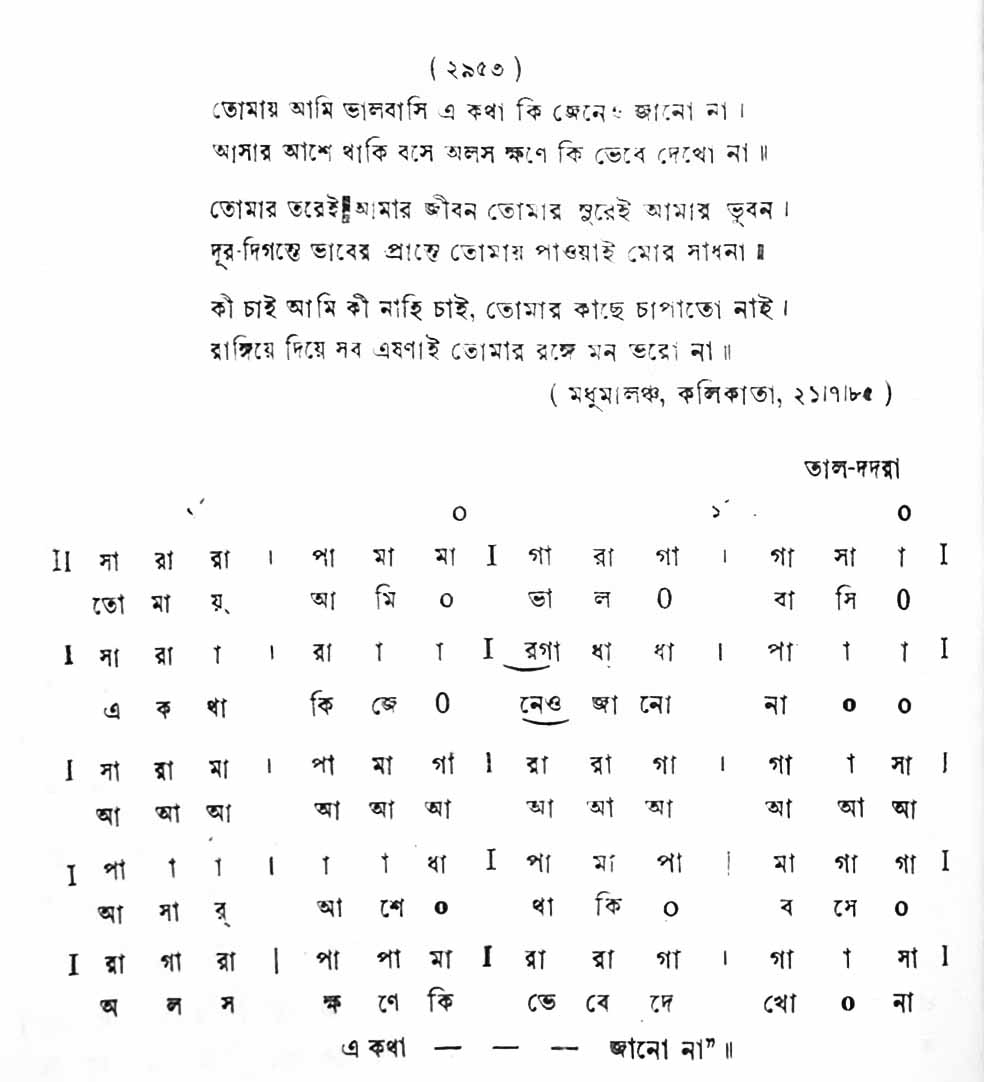 ( ২৯৫৩ )
তোমায় আমি ভালবাসি এ কথা কি জেনেও জানো না ।
আসার আশে থাকি বসে অলস ক্ষণে কি ভেবে দেখো না ॥
তোমার তরেই আমার জীবন তোমার সুরেই আমার ভুবন ।
দূর-দিগন্তে ভাবের প্রান্তে তোমায় পাওয়াই মোর সাধনা ॥
কী চাই আমি কী নাহি চাই, তোমার কাছে চাপাতো নাই ।
রাঙ্গিয়ে দিয়ে সব এষণাই তোমার রঙ্গে মন ভরো না ॥
( মধুমালঞ্চ, কলিকাতা, ২১।৭।৮৫ )
তাল-দদরা
০ ১´ ০
II সা রা রা । পা মা মা I গা রা গা । গা সা া I
তো মা য়্ আ মি ০ ভা ল ০ বা সি ০
I সা রা া । রা া া I রগা ধা ধা । পা া া I
এ ক থা কি জে ০ নেও জা নো না ০ ০
I সা রা মা । পা মা গা I রা রা গা । গা া সা I
আ আ আ আ আ আ আ আ আ আ আ আ
I পা া া । া া ধা I পা মা পা | মা গা গা I
আ সা র্ আ শে ০ থা কি ০ ব সে ০
I রা গা রা | পা পা মা I রা রা গা । গা া সা I
অ ল স ক্ষ ণে কি ভে বে দে খো ০ না
এ কথা — — — জানো না” ॥